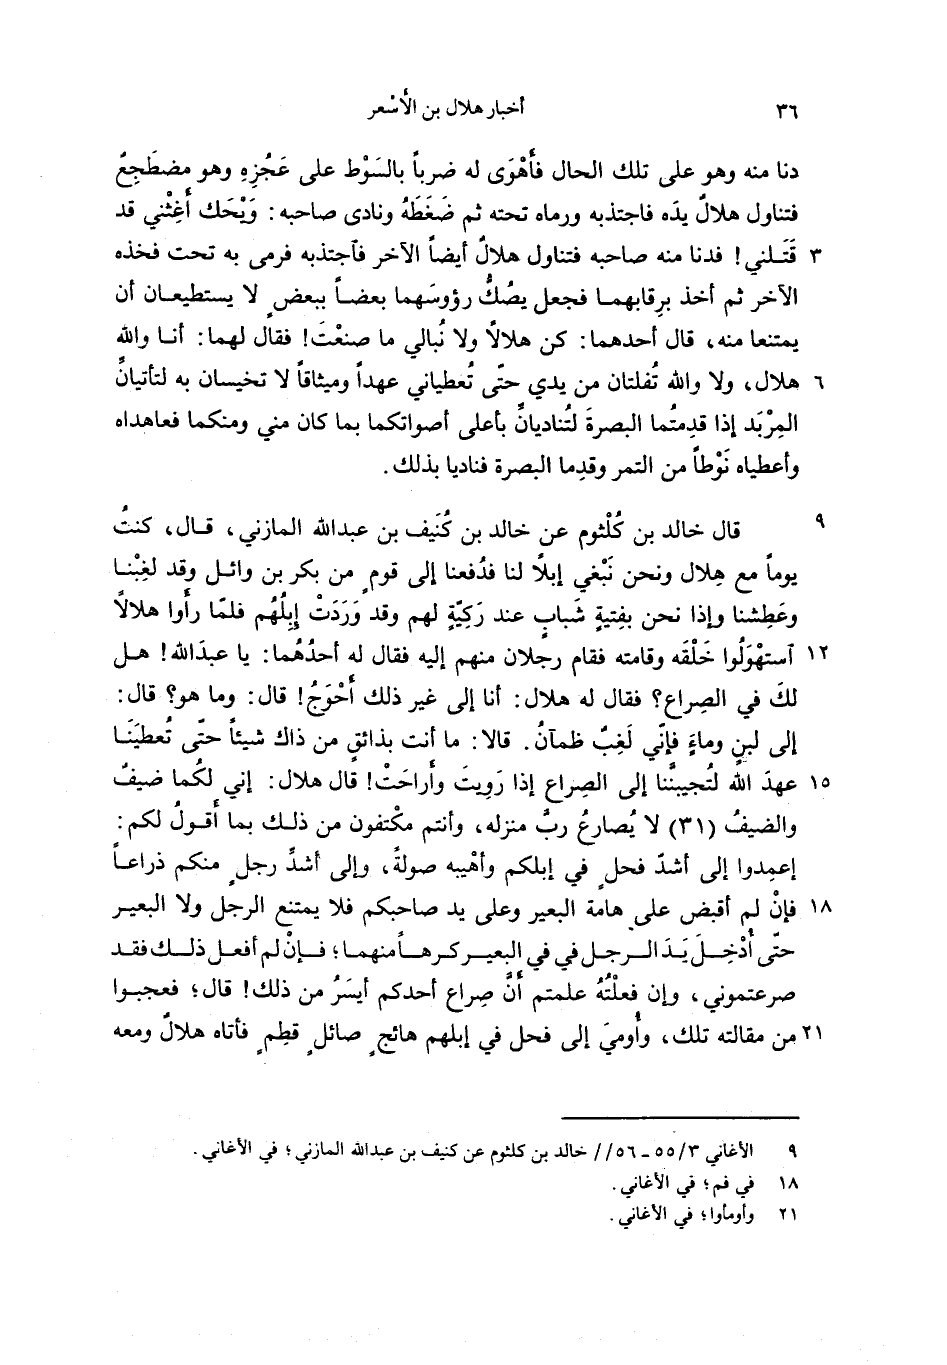 ٣٦ أخبار هلال بن الأَسْعر
دنا منه وهو على تلك الحال فأَهْوَى له ضرباً بالسَوْط على عَجُزِهِ وهو مضطَجِعٌ
فتناول هلالٌ يدَه فاجتذبه ورماه تحته ثم ضَغَطَهُ ونادى صاحبه: وَيْحَك أَغِثْني قد
٣ قَتَلني! فدنا منه صاحبه فتناول هلالٌ أيضاً الآخر فآجتذبه فرمى به تحت فخذه
الآخر ثم أخذ برِقابهما فجعل يصُكُّ رؤوسَهما بعضاً ببعضٍ لا يستطيعان أن
يمتنعا منه، قال أحدهما: كن هلالاً ولا نُبالي ما صنعْتَ! فقال لهما: أنا والله
٦ هلال، ولا والله تُفلتان من يدي حتّى تُعطياني عهداً وميثاقاً لا تخيسان به لتأتيانّ
المِرْبَد إذا قدِمتُما البصرةَ لتُناديانِّ بأعلى أصواتكما بما كان مني ومنكما فعاهداه
وأعطياه نَوْطاً من التمر وقدِما البصرة فناديا بذلك.
٩ قال خالد بن كُلْثوم عن خالد بن كُنَيف بن عبدالله المازني، قال، كنتُ
يوماً مع هِلال ونحن نَبْغي إبلًا لنا فدُفعنا إلى قومٍ من بكر بن وائل وقد لغِبْنا
وعَطِشنا وإذا نحن بفِتيةٍ شَبابٍ عند رَكِيّةٍ لهم وقد وَرَدَتْ إبِلُهُم فلمّا رأَوا هلالًا
١٢ آستهْوَلُوا خَلْقَه وقامته فقام رجلان منهم إليه فقال له أحدُهُما: يا عبدَالله! هل
لكَ في الصِراع؟ فقال له هلال: أنا إلى غير ذلك أَحْوَجُ! قال: وما هو؟ قال:
إلى لبنٍ وماءٍ فإنّي لَغِبٌ ظمآنُ. قالا: ما أنت بذائقٍ من ذاك شيئاً حتّى تُعطيَنَا
١٥ عهدَ الله لتُجيبنَّنا إلى الصِراع إذا رَوِيتَ وأَراحَتْ! قال هلال: إني لكُما ضيفٌ
والضيفُ (٣١) لا يُصارعُ ربَّ منزله، وأنتم مكْتفون من ذلك بما أَقولُ لكم:
إعمِدوا إلى أشدّ فحلٍ في إبلكم وأهْيبه صولةً، وإلى أشدِّ رجلٍ منكم ذراعاً
١٨ فإنْ لم أقبض على هامة البعير وعلى يد صاحبكم فلا يمتنع الرجل ولا البعير
حتّى أُدْخِلَ يَدَ الرجل في في البعير كرهاً منهما؛ فإنْ لم أفعل ذلك فقد
صرعتموني، وإن فعلْتُهُ علمتم أنَّ صِراع أحدكم أيسَرُ من ذلك! قال؛ فعجبوا
٢١ من مقالته تلك، وأُوميَ إلى فحل في إبلهم هائجٍ صائلٍ قطِمٍ فأتاه هلالٌ ومعه
٩ الأغاني ٣/ ٥٥ ـ ٥٦// خالد بن كلثوم عن كنيف بن عبدالله المازني؛ في الأغاني.
١٨ في فم؛ في الأغاني.
٢١ وأومأوا؛ في الأغاني.